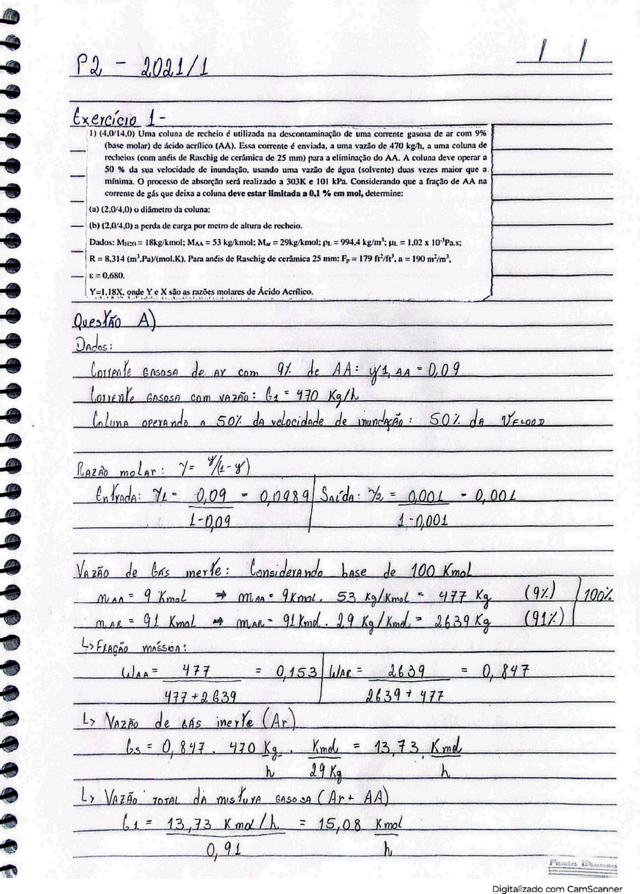 P2 - 2021/1
/ /
Exercício 1-
1) (4,0/14,0) Uma coluna de recheio é utilizada na descontaminação de uma corrente gasosa de ar com 9%
(base molar) de ácido acrílico (AA). Essa corrente é enviada, a uma vazão de 470 kg/h, a uma coluna de
recheios (com anéis de Raschig de cerâmica de 25 mm) para a eliminação do AA. A coluna deve operar a
50 % da sua velocidade de inundação, usando uma vazão de água (solvente) duas vezes maior que a
mínima. O processo de absorção será realizado a 303K e 101 kPa. Considerando que a fração de AA na
corrente de gás que deixa a coluna deve estar limitada a 0,1 % em mol, determine:
(a) (2,0/4,0) o diâmetro da coluna;
(b) (2,0/4,0) a perda de carga por metro de altura de recheio.
Dados: MH2O = 18kg/kmol; MAA = 53 kg/kmol; Mar = 29kg/kmol; ρL = 994,4 kg/m³; μL = 1,02 x 10⁻³Pa.s;
R = 8,314 (m³.Pa)/(mol.K). Para anéis de Raschig de cerâmica 25 mm: Fp = 179 ft²/ft³, a = 190 m²/m³,
ε = 0,680.
Y=1,18X, onde Y e X são as razões molares de Ácido Acrílico.
Questão A)
Dados:
Corrente gasosa de ar com 9% de AA: y1,AA = 0,09
Corrente gasosa com vazão: G1 = 470 Kg/h
Coluna operando a 50% da velocidade de inundação: 50% da VFLOOD
Razão molar: Y = y/(1-y)
Entrada: Y1 = 0,09 / 1-0,09 = 0,0989 | Saída: Y2 = 0,001 / 1-0,001 = 0,001
Vazão de Gás inerte: Considerando base de 100 Kmol
mAA = 9 Kmol ⇒ mAA = 9Kmol. 53 Kg/Kmol = 477 Kg (9%)
mAR = 91 Kmol ⇒ mAR = 91Kmol. 29 Kg/Kmol = 2639 Kg (91%) 100%
↳ Fração mássica:
WAA = 477 / 477+2639 = 0,153 | WAR = 2639 / 2639+477 = 0,847
↳ Vazão de gás inerte (Ar)
Gs = 0,847 . 470 Kg/h . Kmol/29Kg = 13,73 Kmol/h
↳ Vazão total da mistura gasosa (Ar + AA)
G1 = 13,73 Kmol/h / 0,91 = 15,08 Kmol/h
Digitalizado com CamScanner